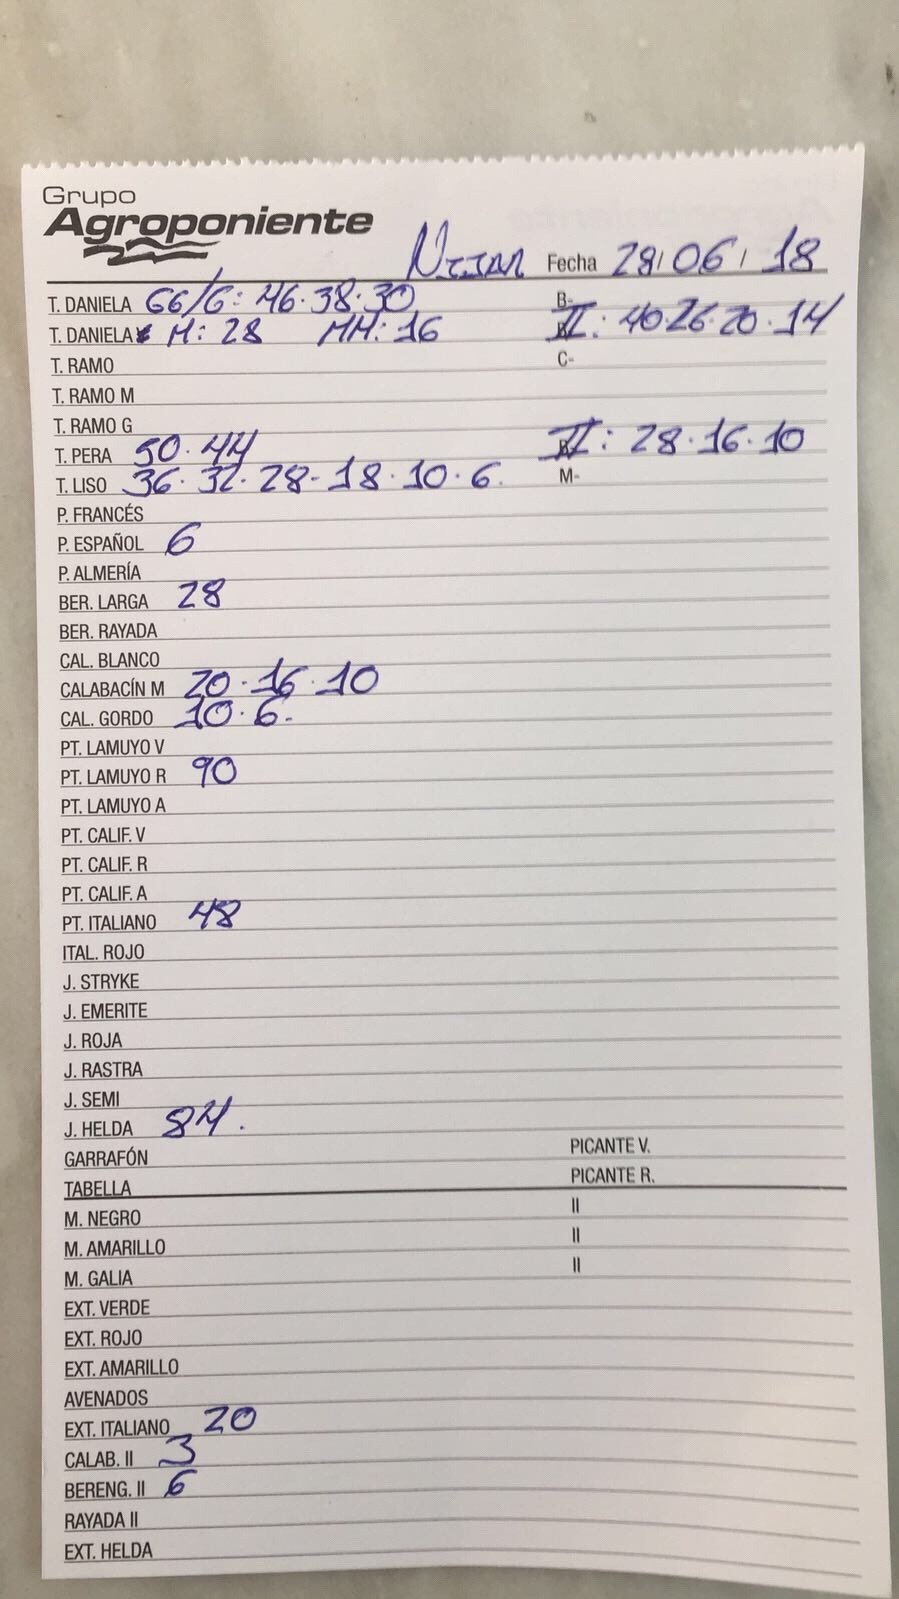 Grupo
Agroponiente
NIJAR Fecha 28/06/18
T. DANIELA GG/G: 46·38·30 B-
T. DANIELA M: 28 MM: 16 II: 40·26·20·14
T. RAMO C-
T. RAMO M
T. RAMO G
T. PERA 50·44 II: 28·16·10
T. LISO 36·32·28-18·10·6. M-
P. FRANCÉS
P. ESPAÑOL 6
P. ALMERÍA
BER. LARGA 28
BER. RAYADA
CAL. BLANCO
CALABACÍN M 20·16·10
CAL. GORDO 10·6.
PT. LAMUYO V
PT. LAMUYO R 90
PT. LAMUYO A
PT. CALIF. V
PT. CALIF. R
PT. CALIF. A
PT. ITALIANO 48
ITAL. ROJO
J. STRYKE
J. EMERITE
J. ROJA
J. RASTRA
J. SEMI
J. HELDA 84.
GARRAFÓN PICANTE V.
TABELLA PICANTE R.
M. NEGRO II
M. AMARILLO II
M. GALIA II
EXT. VERDE
EXT. ROJO
EXT. AMARILLO
AVENADOS
EXT. ITALIANO 20
CALAB. II 3
BERENG. II 6
RAYADA II
EXT. HELDA